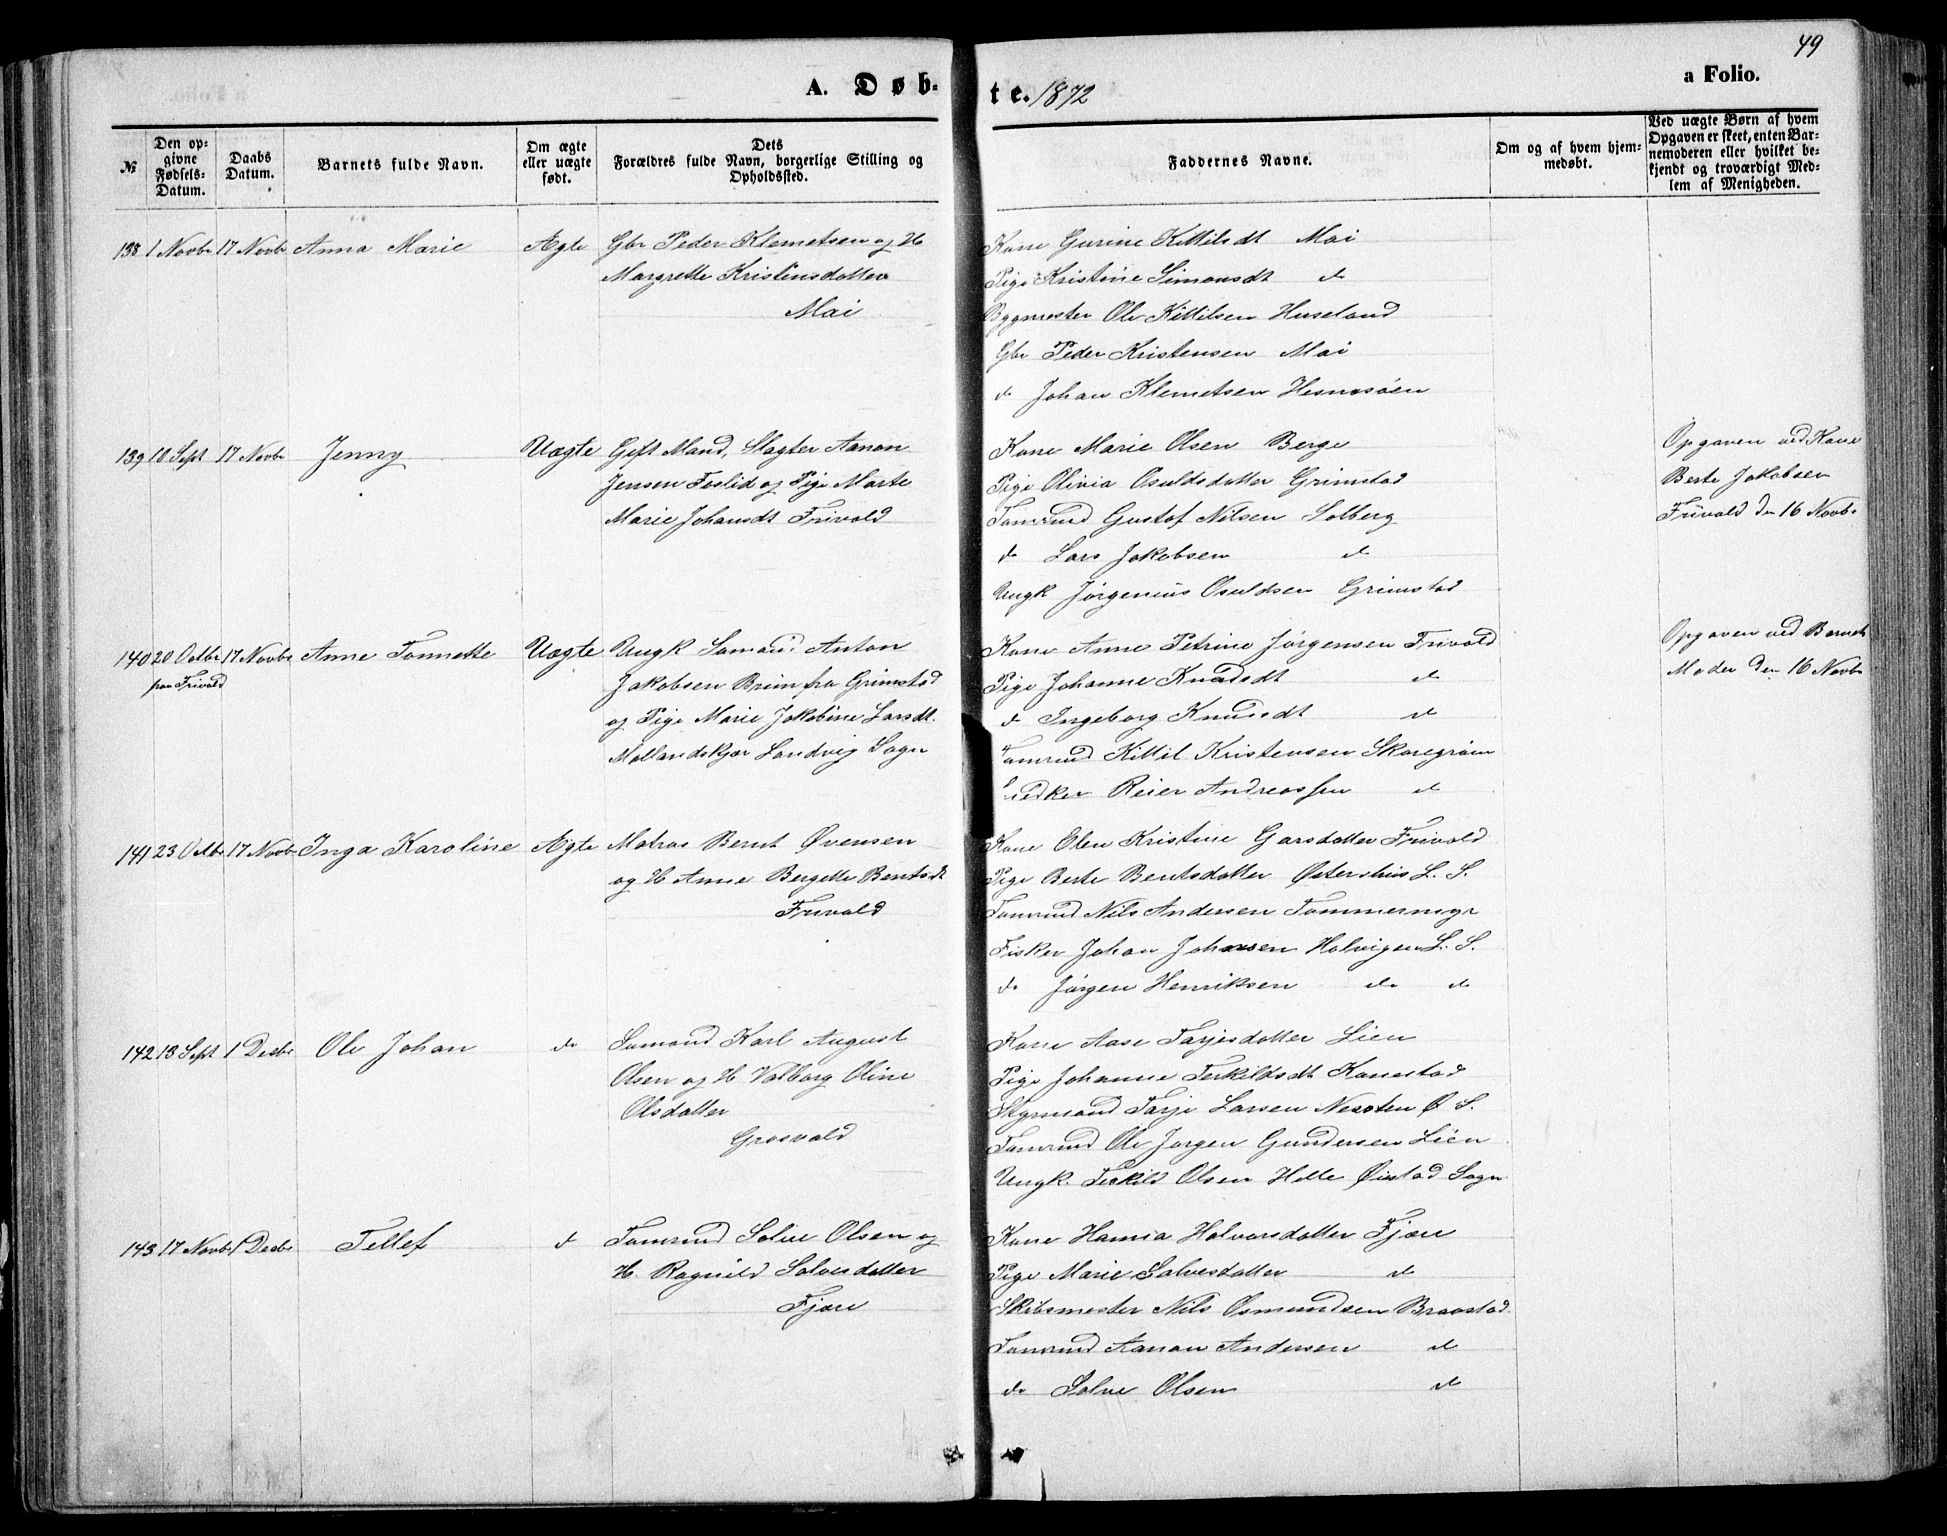 49
A. Døbte. 1872
a Folio.
№
Den opgivne Fødsels-Datum.
Daabs Datum.
Barnets fulde Navn.
Om ægte eller uægte født.
Dets Forældres fulde Navn, borgerlige Stilling og Opholdssted.
Faddernes Navne.
Om og af hvem hjemmedøbt.
Ved uægte Børn af hvem Opgaven er skeet, enten Barnemoderen eller hvilket bekjendt og troværdigt Medlem af Menigheden.
138 1 Novbr 17 Novbr Anna Marie Ægte Gbr Peder Klemetsen og H
Margrethe Kristensdatter
Mai
Kone Gurine Kittilsdt Mai
Pige Kristine Simonsdt do
Bygmester Ole Kittilsen Huseland
Gbr Peder Kristensen Mai
do Johan Klemetsen Hesnesöen
139 18 Sept 17 Novbr Jenny Uægte Gift Mand, Slagter Aanon
Jensen Foslid og Pige Marte
Marie Johansdt Frivold
Kone Marie Olsen Berge
Pige Olivia Osuldsdatter Grimstad
Tømrmd Gustof Nilsen Solberg
do Lars Jakobsen do
Ungk Jørgenius Osuldsen Grimstad
Opgaven ved Kone
Berte Jakobsen
Frivold den 16 Novbr
140 20 Octbr 17 Novbr Anne Tonnette Uægte Ungk Sømand Anton
paa Frivold
Jakobsen Brim fra Grimstad
og Pige Marie Jakobine Larsdt.
Mollandskjær Landvig Sogn
Kone Anne Petrine Jørgensen Frivold
Pige Johanne Knudsdt do
do Ingeborg Knudsdt do
Tømrmd Kittil Kristensen Skaregröm
Snedker Reier Andreassen do
Opgaven ved Barnets
Moder den 16 Novbr
141 23 Octbr 17 Novbr Inga Karoline Ægte Matros Bernt Øvensen
og H Anne Bergette Bentsdt
Frivold
Kone Elen Kristine Garsdatter Frivold
Pige Berte Bentsdatter Østerhus L. S.
Tømrmd Nils Andersen Tømmermyr
Fisker Johan Johansen Halvigen L. S.
do Jørgen Henriksen do do
142 18 Sept 1 Desbr Ole Johan do Sømand Karl August
Olsen og H Valborg Oline
Olsdatter
Grosvold
Kone Aase Tarjesdatter Lien
Pige Johanne Terkildsdt Kanestad
Styrmand Tarje Larsen Nesoten Ø S.
Tømrmd Ole Jørgen Gundersen Lien
Ungk. Terkild Olsen Helle Øiestad Sogn
143 17 Novbr 1 Desbr Tellef do Tømrmd Salve Olsen og
H. Ragnild Salvesdatter
Fjære
Kone Hansia Halvorsdatter Fjære
Pige Marie Salvesdatter do
Skibsmester Nils Osmundsen Braastad
Tømrmd Aanon Andersen do
do Salve Olsen do